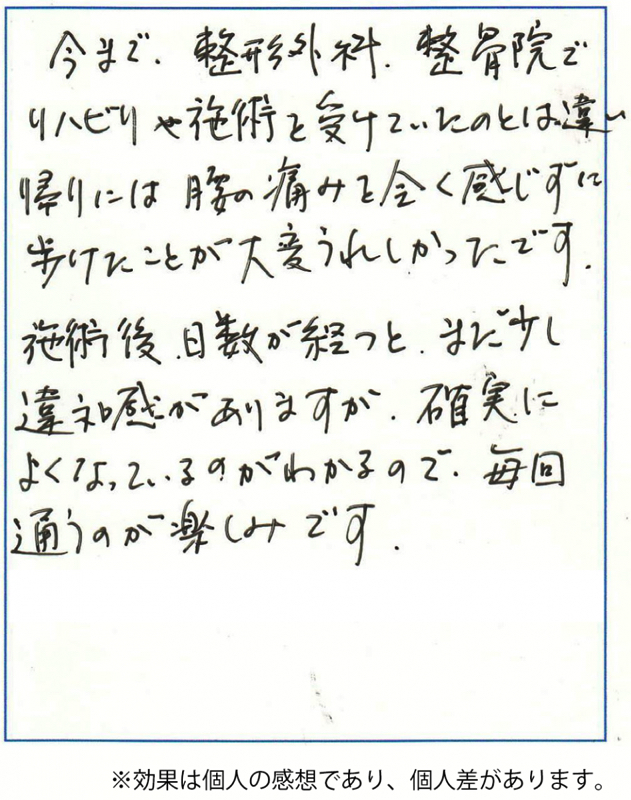 今まで、整形外科、整骨院で
リハビリや施術を受けていたのとは違い
帰りには腰の痛みを全く感じずに
歩けたことが大変うれしかったです。
施術後、日数が経つと、まだ少し
違和感がありますが、確実に
よくなっているのがわかるので、毎回
通うのが楽しみです。
※効果は個人の感想であり、個人差があります。